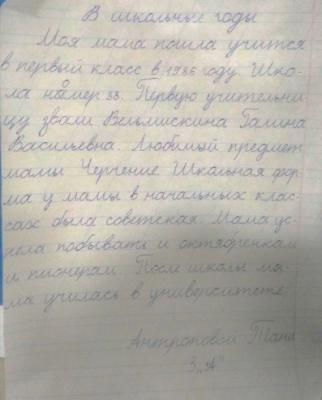 В школьные годы
Моя мама пошла учится
в первый класс в 1986 году. Шко-
ла номер 33. Первую учительни-
цу звали Вельмискина Галина
Васильевна. Любимый предмет
мамы Черчение. Школьная фор-
ма у мамы в начальных клас-
сах была советская. Мама ус-
пела побывать и октябренкам
и пионерам. После школы ма-
ма училась в университете
Антроповой Тани
3 „А"